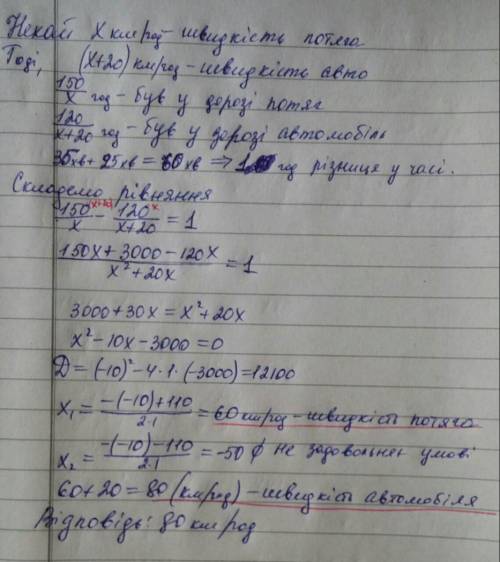 Нехай х км/год - швидкість потяга
Тоді, (х+20) км/год - швидкість авто
150/х год - був у дорозі потяг
120/х+20 год - був у дорозі автомобіль
35хв + 25хв = 60хв ⇒ 1 год різниця у часі.
Складемо рівняння
150/х (х+20) - 120/х+20 х = 1
150х + 3000 - 120х / х² + 20х = 1
3000 + 30х = х² + 20х
х² - 10х - 3000 = 0
D = (-10)² - 4·1·(-3000) = 12100
х₁ = -(-10)+110 / 2·1 = 60 км/год - швидкість потяга
х₂ = -(-10)-110 / 2·1 = -50 ∉ не задовольняє умові
60+20 = 80 (км/год) - швидкість автомобіля
Відповідь: 80 км/год